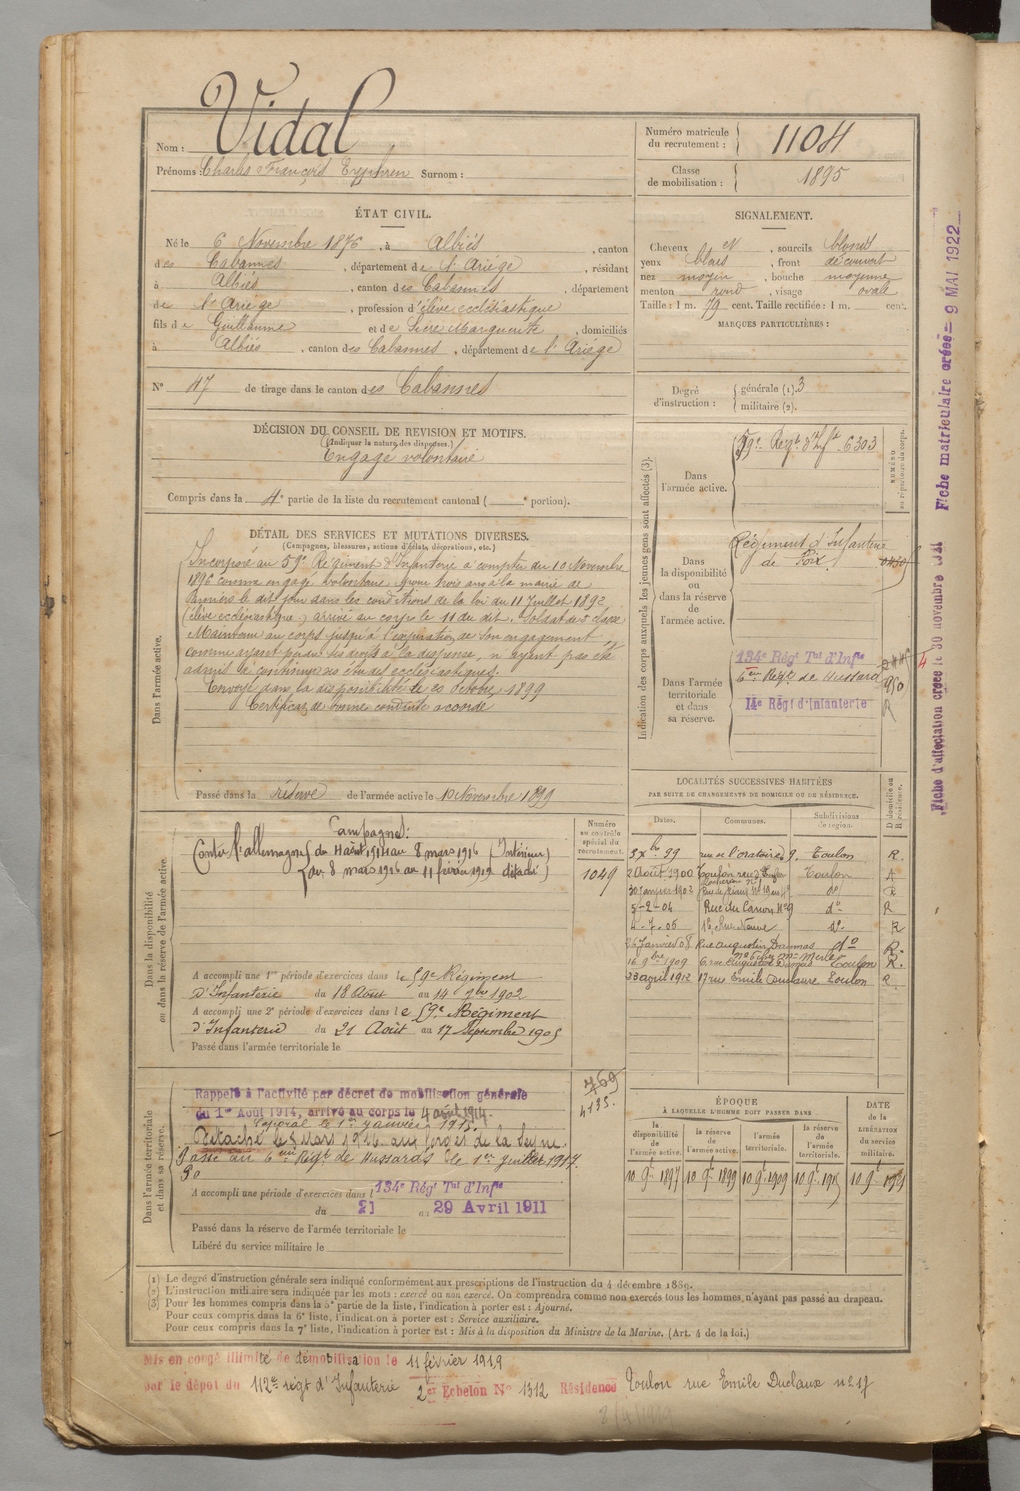 Nom : Vidal
Prénoms : Charles François Surnom :
Numéro matricule
du recrutement : 1104
Classe
de mobilisation : 1895
ÉTAT CIVIL.
Né le 6 Novembre 1876, à Albiès, canton
des Cabannes, département de l'Ariège, résidant
à Albiès, canton des Cabannes, département
de l'Ariège, profession d'élève ecclésiastique
fils de Guillaume et de Marguerite, domiciliés
à Albiès, canton des Cabannes, département de l'Ariège
N° 47 de tirage dans le canton des Cabannes
SIGNALEMENT.
Cheveux , sourcils blonds
yeux bleus, front découvert
nez moyen, bouche moyenne
menton rond, visage ovale
Taille : 1 m. 79 cent. Taille rectifiée : 1 m. cent.
MARQUES PARTICULIÈRES :
Degré
d'instruction :
générale (1). 3
militaire (2).
DÉCISION DU CONSEIL DE REVISION ET MOTIFS.
(Indiquer la nature des dispenses.)
Engagé volontaire
Compris dans la 4e partie de la liste du recrutement cantonal ( e portion).
DÉTAIL DES SERVICES ET MUTATIONS DIVERSES.
(Campagnes, blessures, actions d'éclat, décorations, etc.)
Dans l'armée active.
Incorporé au 59e Régiment d'Infanterie à compter du 10 Novembre
1896 comme engagé volontaire pour trois ans à la mairie de
Pamiers le dit jour dans les conditions de la loi du 11 Juillet 1892
(élève ecclésiastique) arrivé au corps le 11 du dit. Soldat de 2e classe
Maintenu au corps jusqu'à l'expiration de son engagement
comme ayant perdu ses droits à la dispense, n'ayant pas été
admis à continuer ses études ecclésiastiques.
Envoyé dans la disponibilité le Octobre 1899
Certificat de bonne conduite accordé
Passé dans la réserve de l'armée active le 10 Novembre 1899
Indication des corps auxquels les jeunes gens sont affectés (3).
NUMÉRO
au répertoire du corps.
Dans
l'armée active.
59e Régt d'Inft 6303
Dans
la disponibilité
ou
dans la réserve
de
l'armée active.
Régiment d'Infanterie
de Foix
Dans l'armée
territoriale
et dans
sa réserve.
134e Régt Tal d'Infie
6ème Régt de Hussards
14e Régt d'Infanterie
950
R
4
Fiche d'affectation créée le 30 novembre 1921
Fiche matriculaire créée = 9 MAI 1922
LOCALITÉS SUCCESSIVES HABITÉES
PAR SUITE DE CHANGEMENTS DE DOMICILE OU DE RÉSIDENCE.
Dates. Communes. Subdivisions de région. D domicile ou R résidence.
3 Xbre 99 rue de l'oratoire 9. Toulon R.
2 Août 1900 Toulon Toulon
30 janvier 1902 do R
5-2-04 Rue du Canon No 9 do R
4-7-05 do R
26 Janvier 08 Rue Augustin Daumas do R.
16 9bre 1909 6 rue Augustin Daumas Toulon R.
23 avril 1912 17 rue Emile Duclaux Toulon R
Dans la disponibilité
ou dans la réserve de l'armée active.
Numéro
au contrôle
spécial du
recrutement.
1049
Campagnes :
Contre l'allemagne du 4 août 1914 au 8 mars 1916 (Intérieur)
du 8 mars 1916 au 11 février 1919 détaché)
A accompli une 1re période d'exercices dans le 59e Régiment
d'Infanterie du 18 Août au 14 7bre 1902
A accompli une 2e période d'exercices dans le 59e Régiment
d'Infanterie du 21 Août au 17 Septembre 1905
Passé dans l'armée territoriale le
Dans l'armée territoriale
et dans sa réserve.
769
4135.
Rappelé à l'activité par décret de mobilisation générale
du 1er Août 1914, arrivé au corps le 4 août 1914.
Caporal le 1er janvier 1915.
Détaché le 8 Mars 1916 aux forges de la Seyne.
Passé au 6ème Régt de Hussards le 1er juillet 1917.
A accompli une période d'exercices dans l 134e Régt Tal d'Infie
du 21 au 29 Avril 1911
Passé dans la réserve de l'armée territoriale le
Libéré du service militaire le
ÉPOQUE
À LAQUELLE L'HOMME DOIT PASSER DANS
DATE
de la
LIBÉRATION
du service
militaire.
la disponibilité de l'armée active. la réserve de l'armée active. l'armée territoriale. la réserve de l'armée territoriale.
10 9e 1897 10 9e 1899 10 9e 1909 10 9e 1915 10 9e 1921
(1) Le degré d'instruction générale sera indiqué conformément aux prescriptions de l'instruction du 4 décembre 1889.
(2) L'instruction militaire sera indiquée par les mots : exercé ou non exercé. On comprendra comme non exercés tous les hommes n'ayant pas passé au drapeau.
(3) Pour les hommes compris dans la 5e partie de la liste, l'indication à porter est : Ajourné.
Pour ceux compris dans la 6e liste, l'indication à porter est : Service auxiliaire.
Pour ceux compris dans la 7e liste, l'indication à porter est : Mis à la disposition du Ministre de la Marine. (Art. 4 de la loi.)
Mis en congé illimité de démobilisation le 11 février 1919
par le dépôt du 112e régt d'Infanterie 2e Echelon N° 1312 Résidence Toulon rue Emile Duclaux no 17